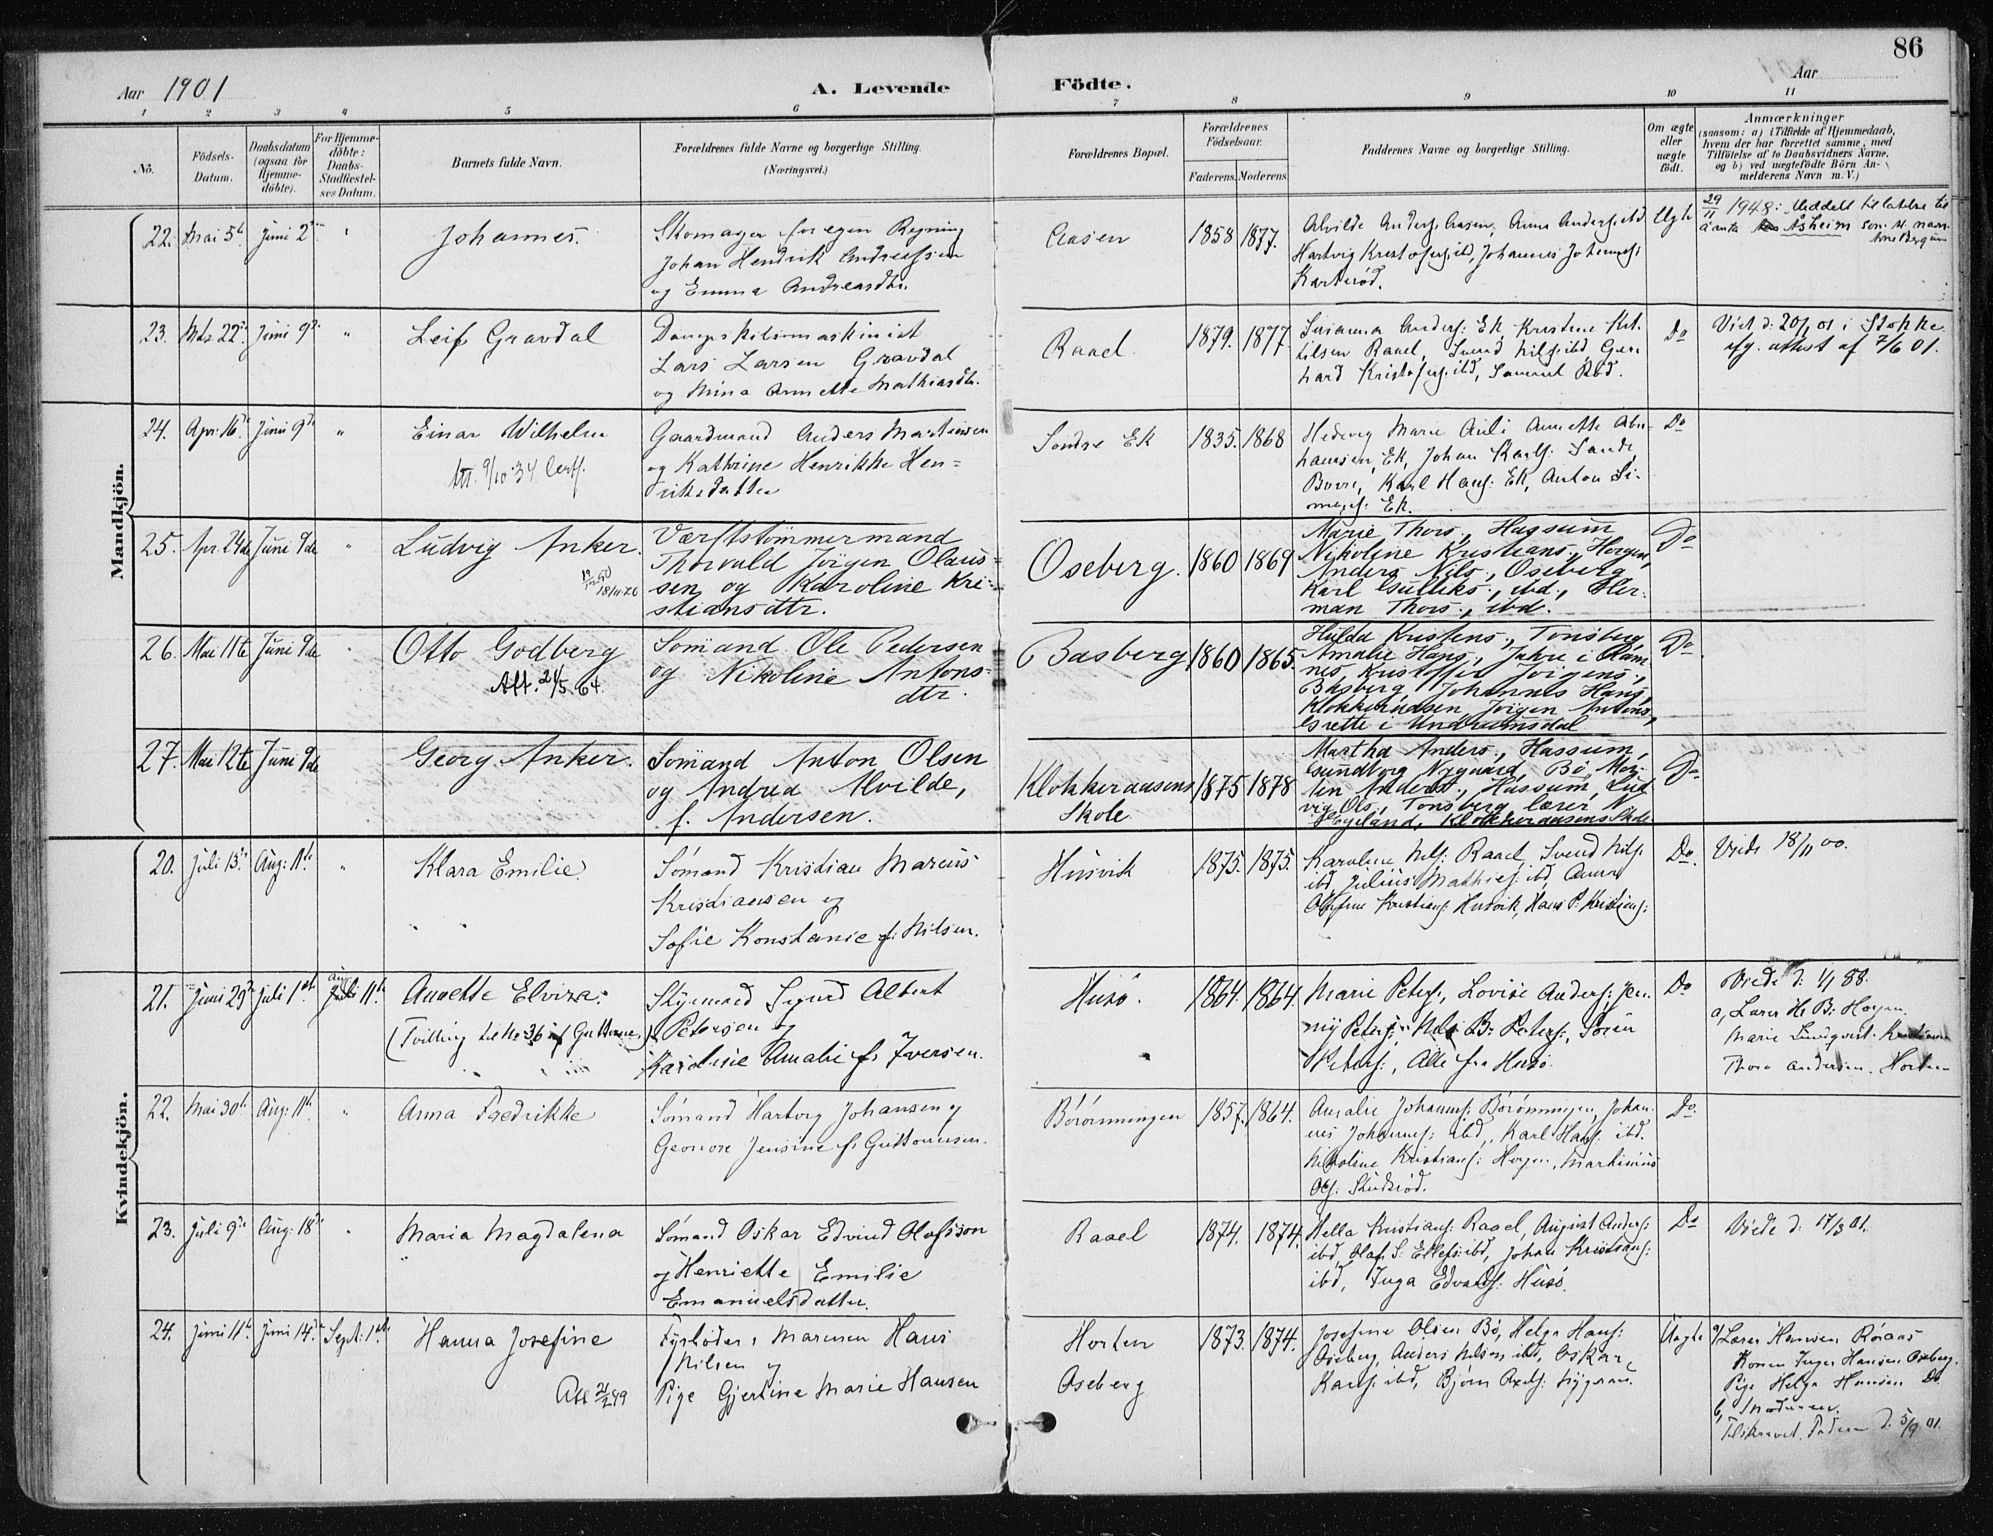 86
Aar 1901
A. Levende
Födte.
Aar
1 2 3 4 5 6 7 8 9 10 11
No.
Födsels-
Datum.
Daabsdatum
(ogsaa for
Hjemme-
döbte).
For Hjemme-
döbte:
Daabs-
Stadfæstel-
ses Datum.
Barnets fulde Navn.
Forældrenes fulde Navne og borgerlige Stilling.
(Næringsvei.)
Forældrenes Bopæl.
Forældrenes
Födselsaar.
Faderens. Moderens.
Faddernes Navne og borgerlige Stilling.
Om ægte
eller
uægte
födt.
Anmærkninger
(saasom: a) i Tilfælde af Hjemmedaab,
hvem der har forrettet samme, med
Tilföielse af to Daabsvidners Navne,
og b) ved uægtefödte Börn An-
melderens Navn m. V.)
Mandkjön.
22. Mai 5te Juni 2den "
Johannes.
Skomager for egen Regning
Johan Hendrik Andreassen
og Emma Andreasdtr.
Aasen
1858 1877.
Alvilde Anders: Aasen, Anna Anders: ibd
Hartvig Kristofers: ibd, Johannes Johannes:
Karterød.
Ægte
29/11 1948: Meddelt tillatelse til
å anta Åsheim som sl. navn
Arne Bergum
23. Mts 22de Juni 9de "
Leif Gravdal
Dampskibsmaskinist
Lars Larsen Gravdal
og Mina Annette Mathiasdtr.
Raael.
1879. 1877.
Susanna Anders: Ek, Kristine Ket-
tilsen Raael, Svend Nils: ibd, Ger-
hard Kristofers: ibd, Samuel Rød.
Do
Viet d: 20/1 01 i Stokke
ifg. attest af 7/6 01.
24. Apr. 16de Juni 9de "
Einar Wilhelm
Att. 9/10-34 Certf.
Gaardmand Anders Martinsen
og Kathrine Henrikke Hen-
riksdatter
Søndre Ek
1835. 1868
Hedevig Marie Auli Annette Abra-
hamsen, Ek, Johan Karls: Sande,
Borre, Karl Hans: Ek, Anton Si-
mens: Ek.
Do
25. Apr. 24de Juni 9de "
Ludvig Anker.
18/11-76
Værftstömmermand
Thorvald Jörgen Olaus-
sen og Karoline Kri-
stiansdtr.
Oseberg.
1860 1869
Marie Thors., Hassum,
Nikoline Kristians., Horgen,
Anders Nils., Oseberg
Karl Gulliks., ibd., Her-
man Thors., ibd.
Do
26. Mai 11te Juni 9de "
Otto Godberg
Att. 21/5 64.
Sömand Ole Pedersen
og Nikoline Antons-
dtr.
Basberg
1860 1865.
Hulda Kristens., Tonsberg,
Amalie Hans., Jahre i Ram-
nes, Kristoffer Jörgens.,
Basberg, Johannes Hans.,
Klokkeraasen, Jörgen Antons.,
Grette i Undrumsdal
Do
27. Mai 12te Juni 9de
Georg Anker.
Sömand Anton Olsen
og Andrea Alvilde,
f. Andersen.
Klokkeraasens
Skole.
1875 1878
Martha Anders., Hassum,
Gundborg Nygaard, Bö, Mar-
tin Anders., Hassum, Lud-
vig Ols., Tonsberg, lærer N.
Egeland, Klokkeraasens Skole
Do
Kvindekjön.
20. Juli 13de Aug: 11te "
Klara Emilie.
Sømand Kristian Marcus
Kristiansen og
Sofie Konstanse f: Nilsen.
Husvik
1875. 1875.
Karoline Nils: Raael, Svend Nils:
ibd, Julius Mathias: ibd, Anna
Olefine Kristians: Husvik, Hans P. Kristians:
Do.
Viede 18/11 00.
21. Juni 29de Juli 1ste Aug 11te
Annette Elvira.
(Tvilling til No 36 af Guttene.)
Styrmand Sigurd Albert
Petersen og
Karoline Amalie f: Iversen.
Husø.
1864. 1864.
Marie Peters:, Lovise Anders:, Jen-
ny Peters:, Nils B: Peters:, Søren
Peters:, Alle fra Husø.
Do
Viede d: 4/1 88.
a, Lærer H B: Horgen.
Marie Lindqvist.
Thora Andersen. Horten
22. Mai 30te Aug: 11te "
Anna Fredrikke
Sømand Hartvig Johansen og
Geonore Jensine f: Guttormsen.
Børønningen
1857. 1864.
Amalie Johanns: Børønningen, Johan-
nes Johanns: ibd, Karl Hans: ibd.
Nikoline Kristians: Horgen, Martinius
Ols: Studsrød.
Do.
23. Juli 9de Aug: 18de "
Maria Magdalena
Sømand Oskar Edvind Olofsson
og Henriette Emilie
Emanuelsdatter.
Raael
1874. 1874.
Hella Kristians: Raael, August Anders:
ibd, Olaf S: Ellefs: ibd, Johan Kristians:
ibd, Inga Edvards: Husø.
Do
Viede d: 17/3 01.
24. Juni 11te Juni 14de Sept: 1ste
Hanna Josefine
Att 21/2 49
Fyrbøder i Marinen Hans
Nilsen og
Pige Gjertine Marie Hansen
Horten
Oseberg
1873. 1874.
Josefine Olsen Bø, Helga Hans:
Oseberg, Anders Nilsen ibd, Oskar
Karls: ibd, Bjørn Axels: Nygaard.
Uægte
a/ Lærer Hansen Røraas
Konen Inger Hansen Oseberg.
Pige Helga Hansen Do.
b, Moderen.
Tilskrevet Faderen d. 5/9 01.